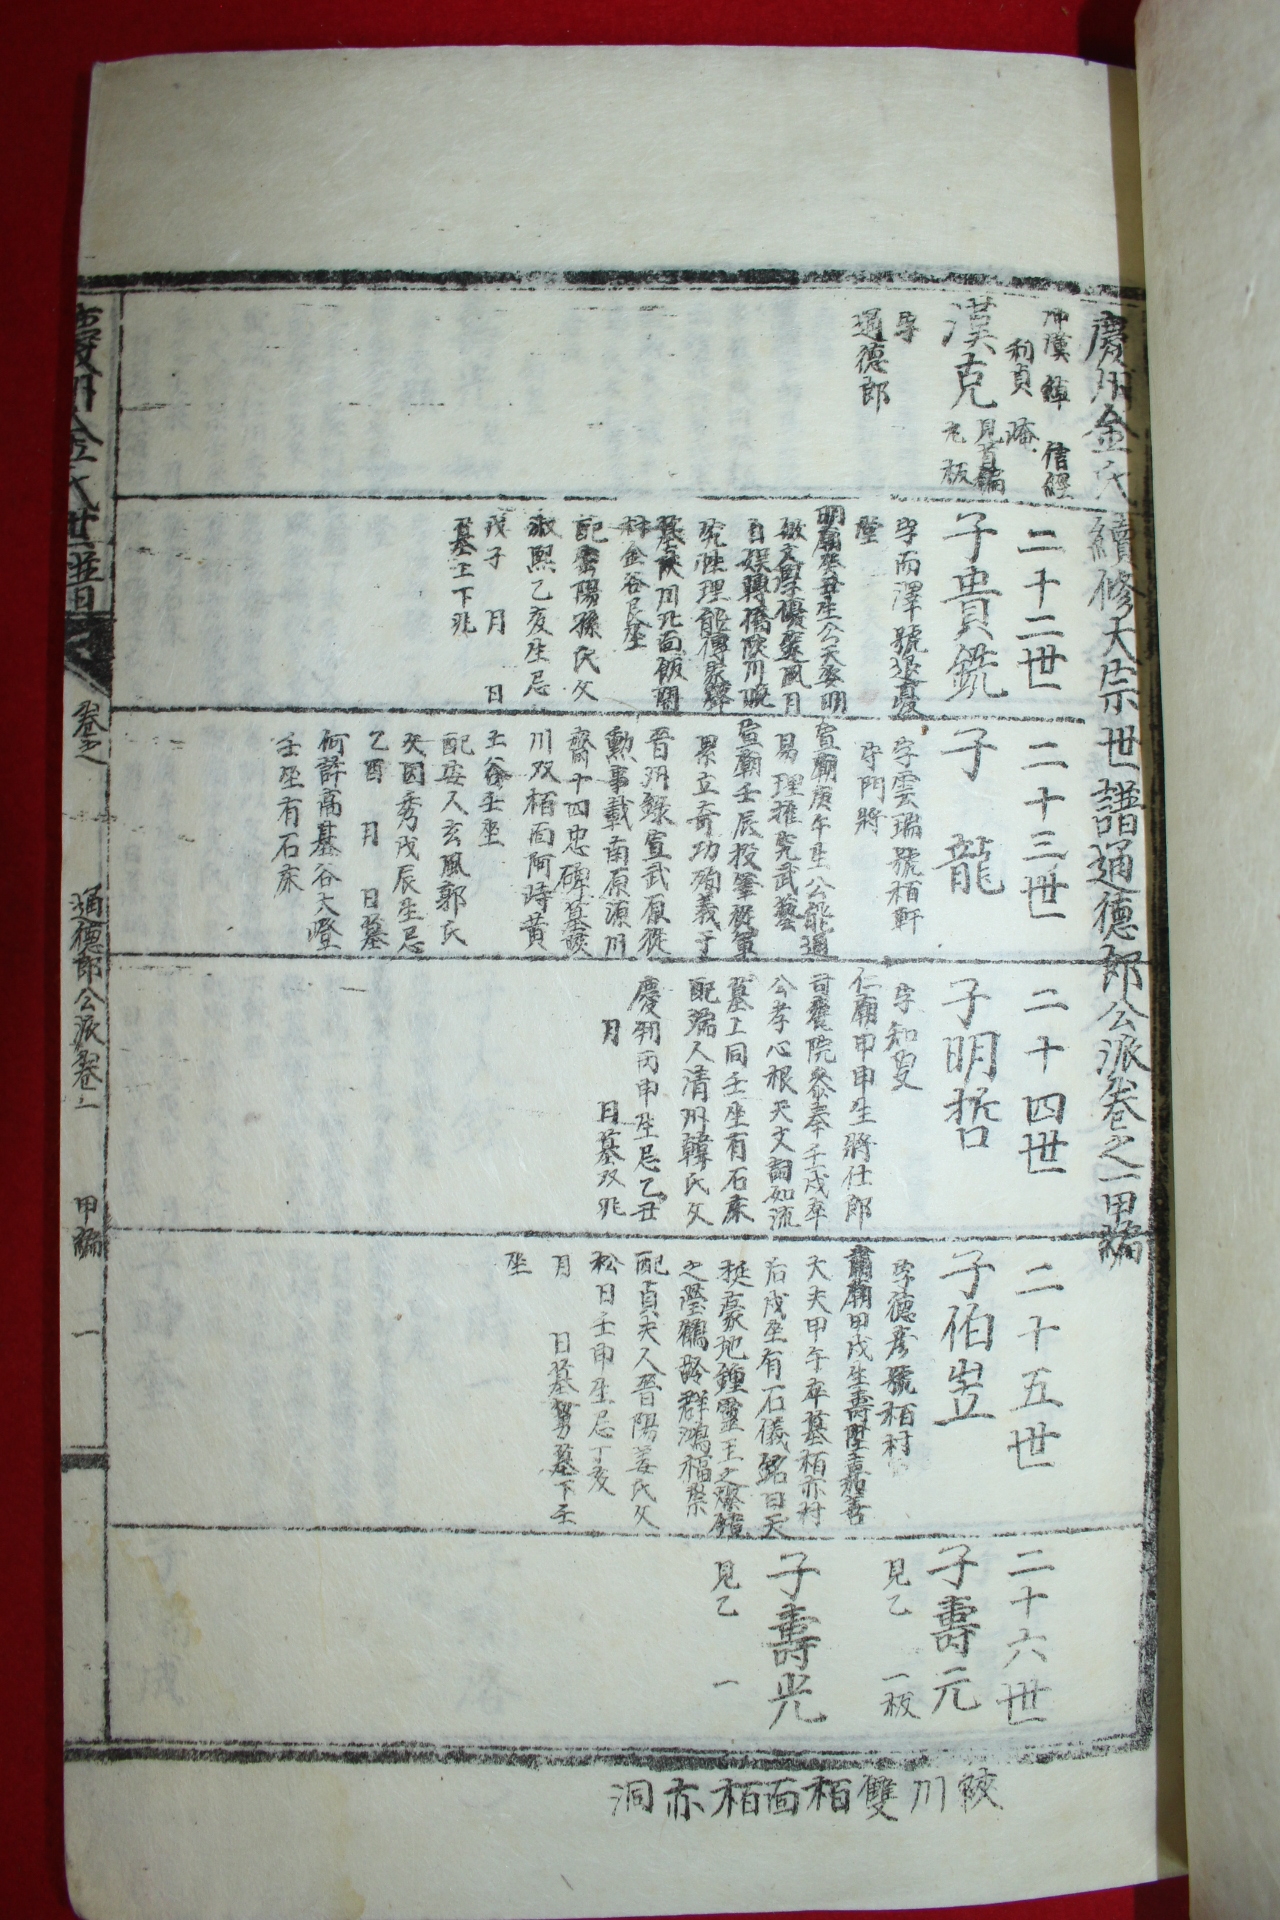 慶州金氏續修大宗世譜通德郎公派卷之一甲編
沖漢 綽 信經
利貞 淹
漢克
見首編
九板
字
通德郎
二十二世
子貴銑
字而澤號退憂
堂
明廟癸丑生公天姿明
敏文學優餘風月
自娛轉僑陜川晩
究性理能傳家聲
墓陜川北面飯開
村金谷艮坐
配密陽孫氏父
淑熙乙亥生忌
戊子 月 日
墓上下兆
二十三世
子 龍
字雲瑞號栢軒
守門將
宣廟庚午生公能通
易理推究武藝
宣廟壬辰投筆從軍
累立奇功殉義于
晉州錄宣武原從
勳事載南原源川
齋十四忠碑墓陜
川双栢面阿時黃
土谷壬坐
配安人玄風郭氏
父因秀戊辰生忌
乙酉 月 日墓
何許高基谷大嶝
壬坐有石床
二十四世
子明哲
字知叟
仁廟甲申生將仕郎
司饔院參奉壬戌卒
公孝心根天文詞如流
墓上同壬坐有石床
配端人清州韓氏父
慶朔丙申生忌乙丑
月 日墓双兆
二十五世
子伯岦
字德彦號栢村
肅廟甲戌生壽陞嘉善
大夫甲午卒墓栢亦村
后戌坐有石儀銘曰天
挺豪地鍾靈王之爵錯
之瑩鶴齡群鴻福榮
配貞夫人晉陽姜氏父
松日壬申生忌丁亥
月 日墓舅墓下壬
坐
二十六世
子壽元
見乙 一板
子壽光
見乙 一
陜川雙栢面栢亦洞
慶州金氏世譜
卷之
通德郎公派卷一
甲編
一